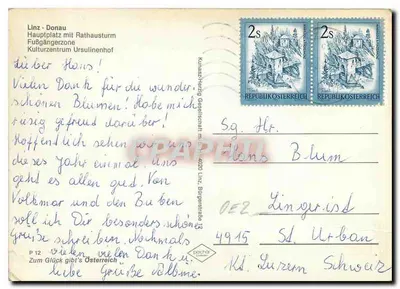 Linz - Donau
Hauptplatz mit Rathausturm
Fußgängerzone
Kulturzentrum Ursulinenhof
Lieber Hans!
Vielen Dank für die wunder-
schönen Blumen! Habe mich
riesig gefreut darüber!
Hoffentlich sehen wir uns
dieses Jahr einmal. Uns
geht es allen gut. Von
Volkmar und den Buben
soll ich Dir besonders schöne
Grüße schreiben. Nochmals
vielen vielen Dank u.
liebe Grüße
P 12
Zum Glück gibt's Österreich
2s
REPUBLIK ÖSTERREICH
2s
REPUBLIK ÖSTERREICH
Sg. Hr.
Hans Blum
4915 St. Urban
Kt. Luzern Schweiz